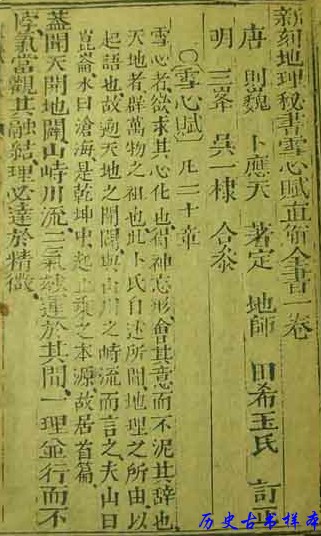 新刻地理秘書雪心賦直解全書一卷
唐 則巍 卜應天 著定 地師 田希玉氏 訂正
明 三峯 吳一棣 合叅
○雪心賦 凡二十章
雪心者欲求其心化也得神忘形會其意而不泥其辭也
天地者群萬物之祖也此卜氏自述所聞地理之所由以
起語也故遡天地之開闢與山川之峙流而言之夫山曰
崑崙水曰滄海是乾坤中起止乘之本源故居首篇
蓋聞天開地闢山峙川流二氣妙運於其間一理並行而不
悖氣當觀其融結理必達於精微
历史古书样本